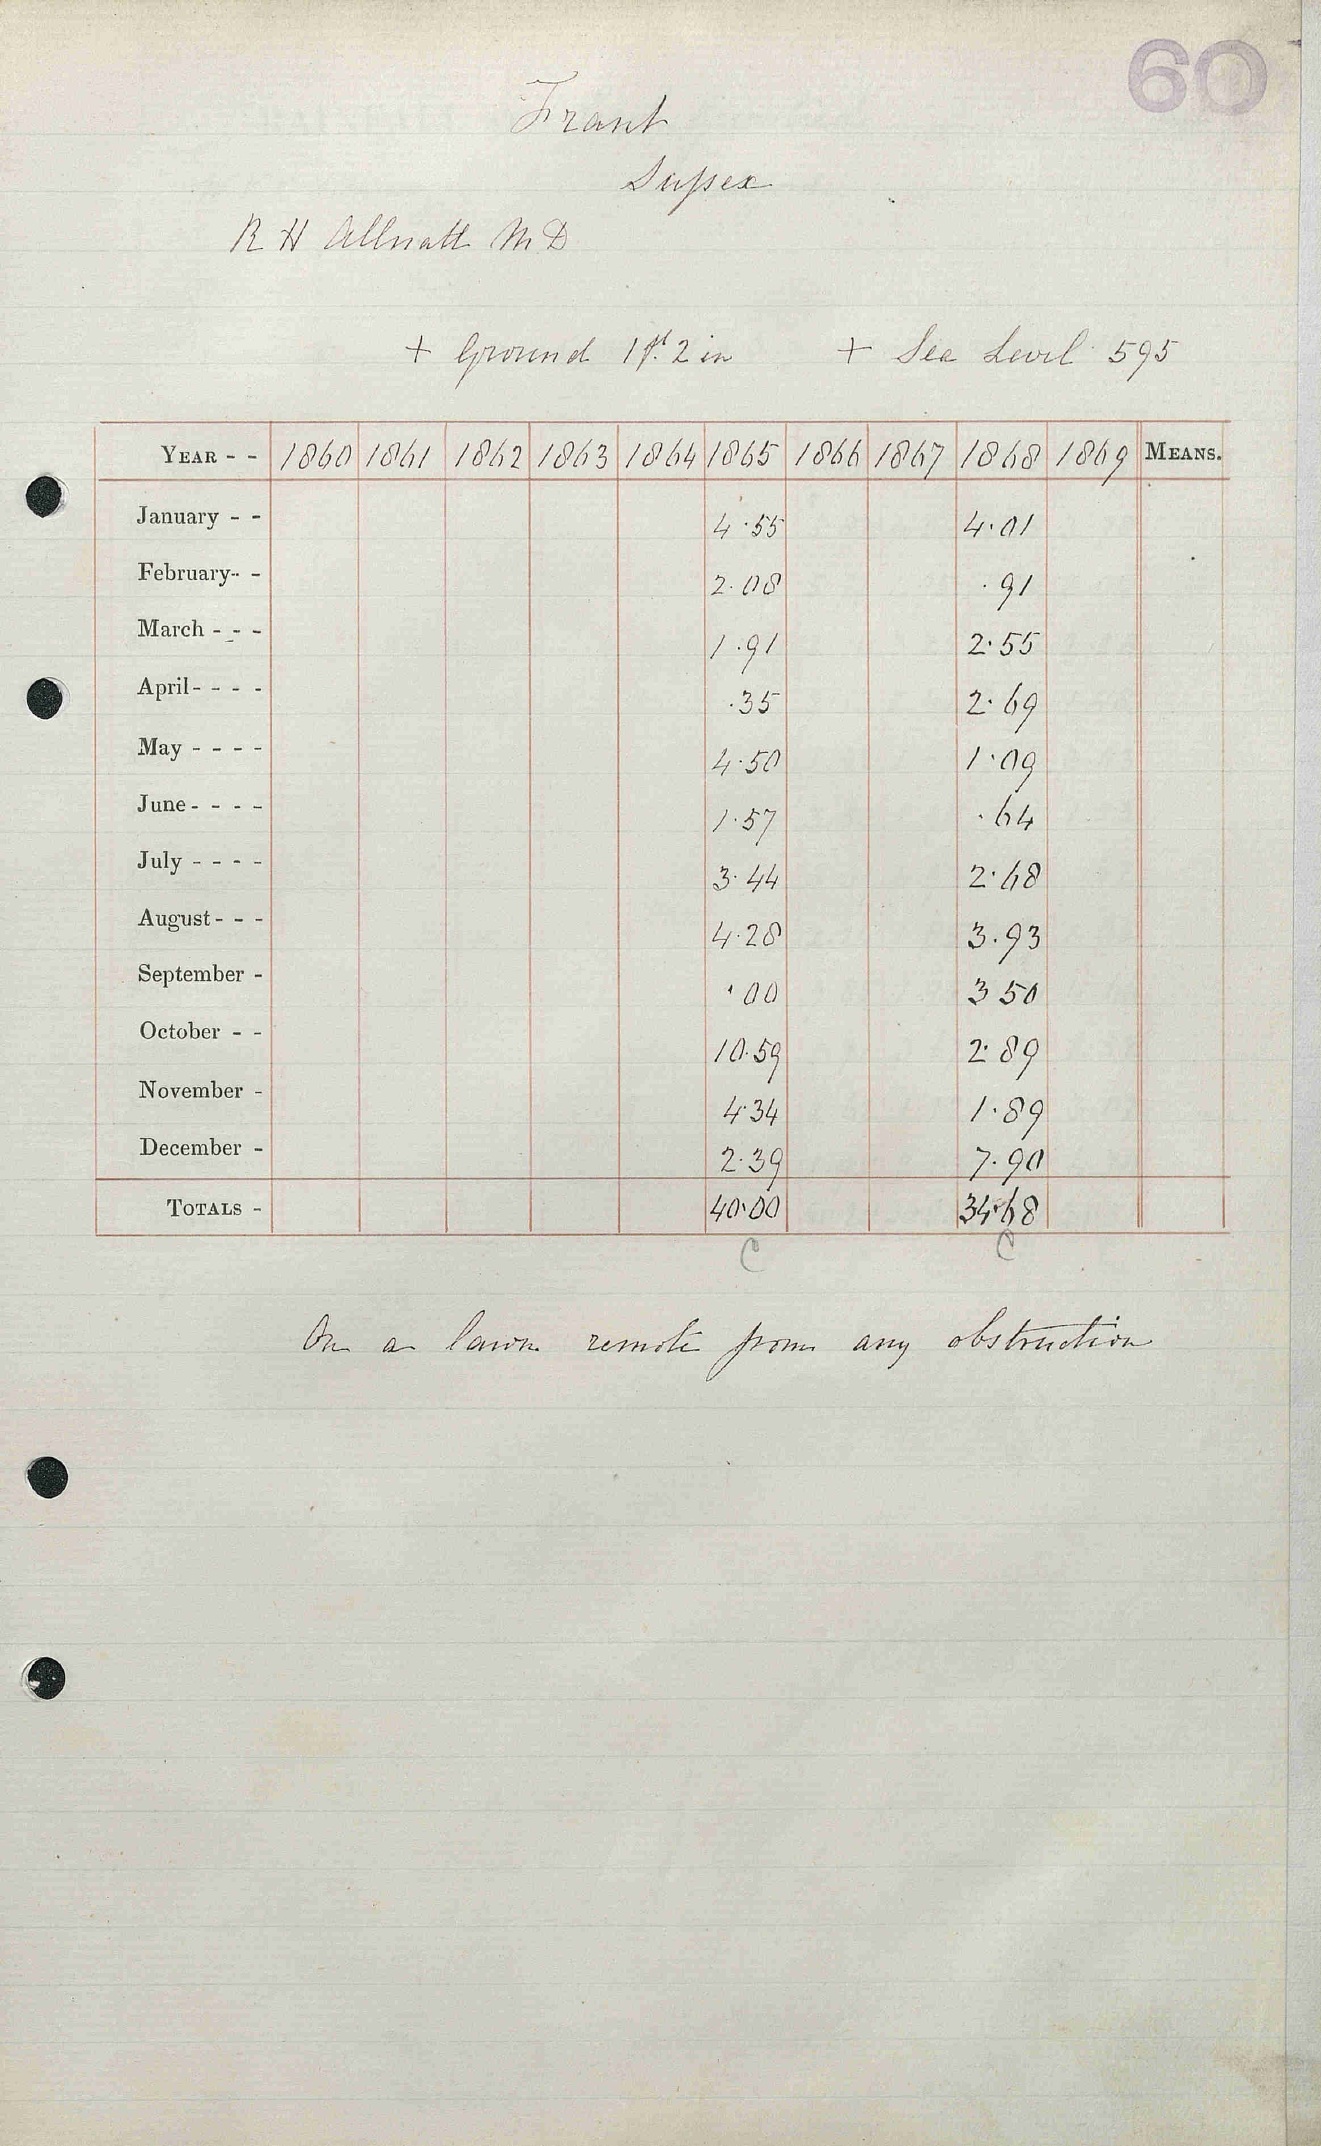 60
Frant
Sussex
R H Allnatt M D
+ Ground 1 ft. 2 in + Sea Level 595
YEAR - - 1860 1861 1862 1863 1864 1865 1866 1867 1868 1869 MEANS.
January - - 4.55 4.01
February - - 2.08 .91
March - - - 1.91 2.55
April - - - - .35 2.69
May - - - - 4.50 1.09
June - - - - 1.57 .64
July - - - - 3.44 2.68
August - - - 4.28 3.93
September - .00 3 50
October - - 10.59 2.89
November - 4.34 1.89
December - 2.39 7.90
TOTALS - 40.00 34.68
C C
On a lawn remote from any obstruction